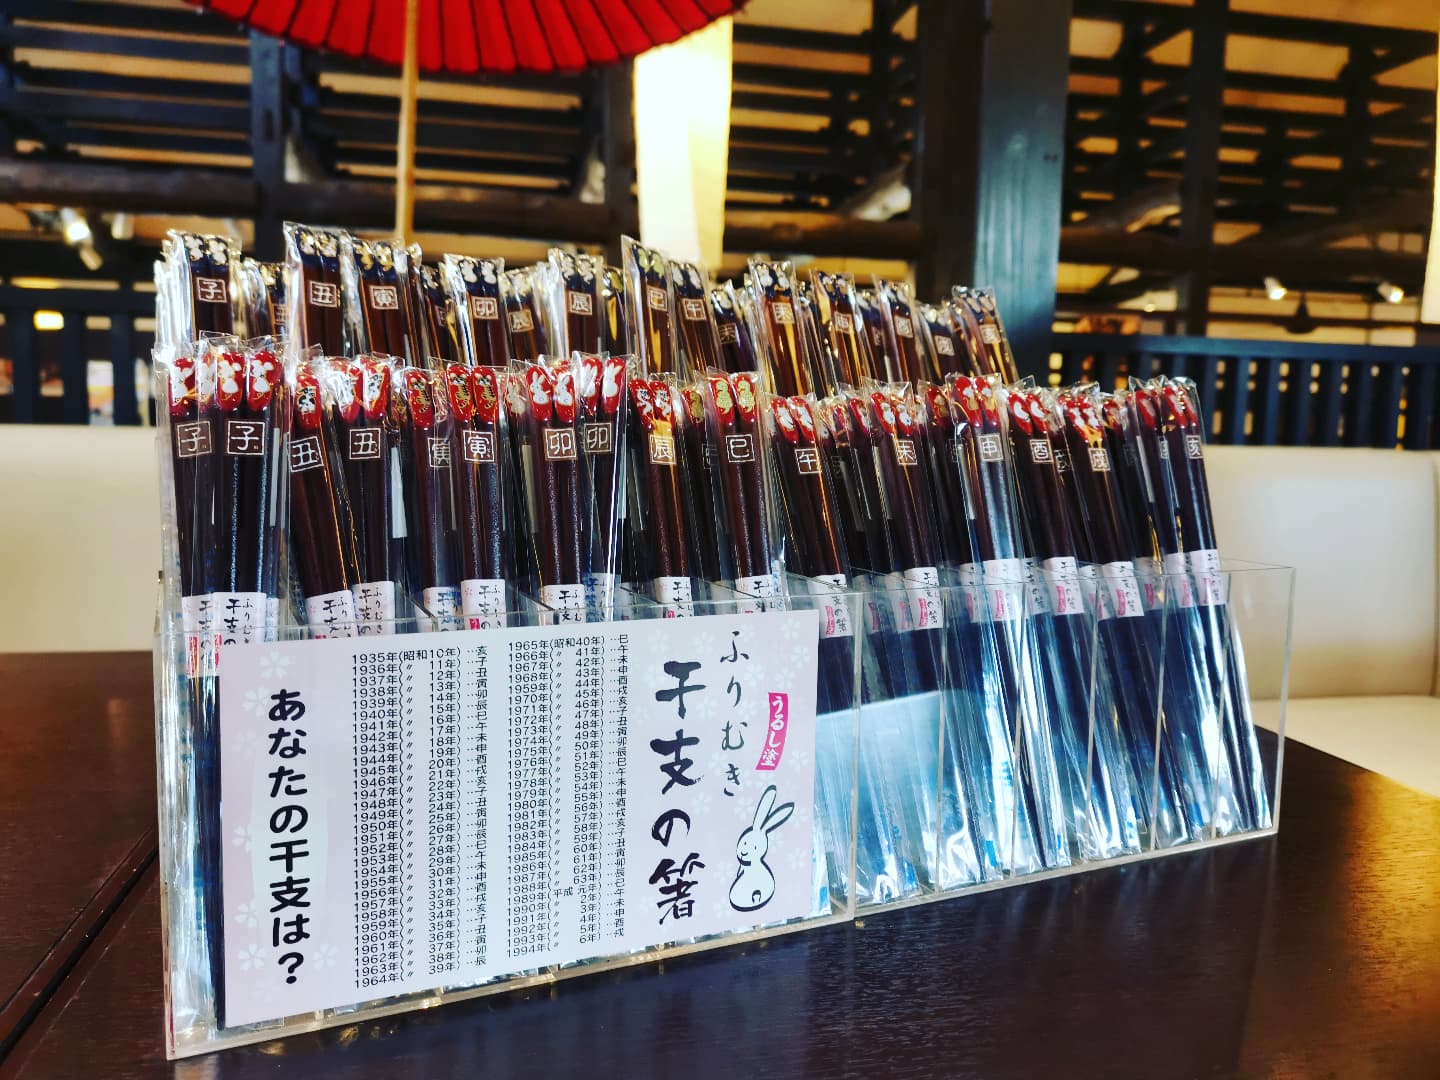 子
丑
寅
卯
辰
辰
巳
午
未
未
申
酉
戌
亥
子
子
丑
丑
寅
寅
卯
卯
辰
巳
午
未
申
酉
戌
亥
ふりむき
干支の箸
うるし塗
1935年(昭和10年)…亥
1936年(〃 11年)…子
1937年(〃 12年)…丑
1938年(〃 13年)…寅
1939年(〃 14年)…卯
1940年(〃 15年)…辰
1941年(〃 16年)…巳
1942年(〃 17年)…午
1943年(〃 18年)…未
1944年(〃 19年)…申
1945年(〃 20年)…酉
1946年(〃 21年)…戌
1947年(〃 22年)…亥
1948年(〃 23年)…子
1949年(〃 24年)…丑
1950年(〃 25年)…寅
1951年(〃 26年)…卯
1952年(〃 27年)…辰
1953年(〃 28年)…巳
1954年(〃 29年)…午
1955年(〃 30年)…未
1956年(〃 31年)…申
1957年(〃 32年)…酉
1958年(〃 33年)…戌
1959年(〃 34年)…亥
1960年(〃 35年)…子
1961年(〃 36年)…丑
1962年(〃 37年)…寅
1963年(〃 38年)…卯
1964年(〃 39年)…辰
1965年(昭和40年)…巳
1966年(〃 41年)…午
1967年(〃 42年)…未
1968年(〃 43年)…申
1959年(〃 44年)…酉
1970年(〃 45年)…戌
1971年(〃 46年)…亥
1972年(〃 47年)…子
1973年(〃 48年)…丑
1974年(〃 49年)…寅
1975年(〃 50年)…卯
1976年(〃 51年)…辰
1977年(〃 52年)…巳
1978年(〃 53年)…午
1979年(〃 54年)…未
1980年(〃 55年)…申
1981年(〃 56年)…酉
1982年(〃 57年)…戌
1983年(〃 58年)…亥
1984年(〃 59年)…子
1985年(〃 60年)…丑
1986年(〃 61年)…寅
1987年(〃 62年)…卯
1988年(〃 63年)…辰
1989年(平成 元年)…巳
1990年(〃 2年)…午
1991年(〃 3年)…未
1992年(〃 4年)…申
1993年(〃 5年)…酉
1994年(〃 6年)…戌
あなたの干支は?